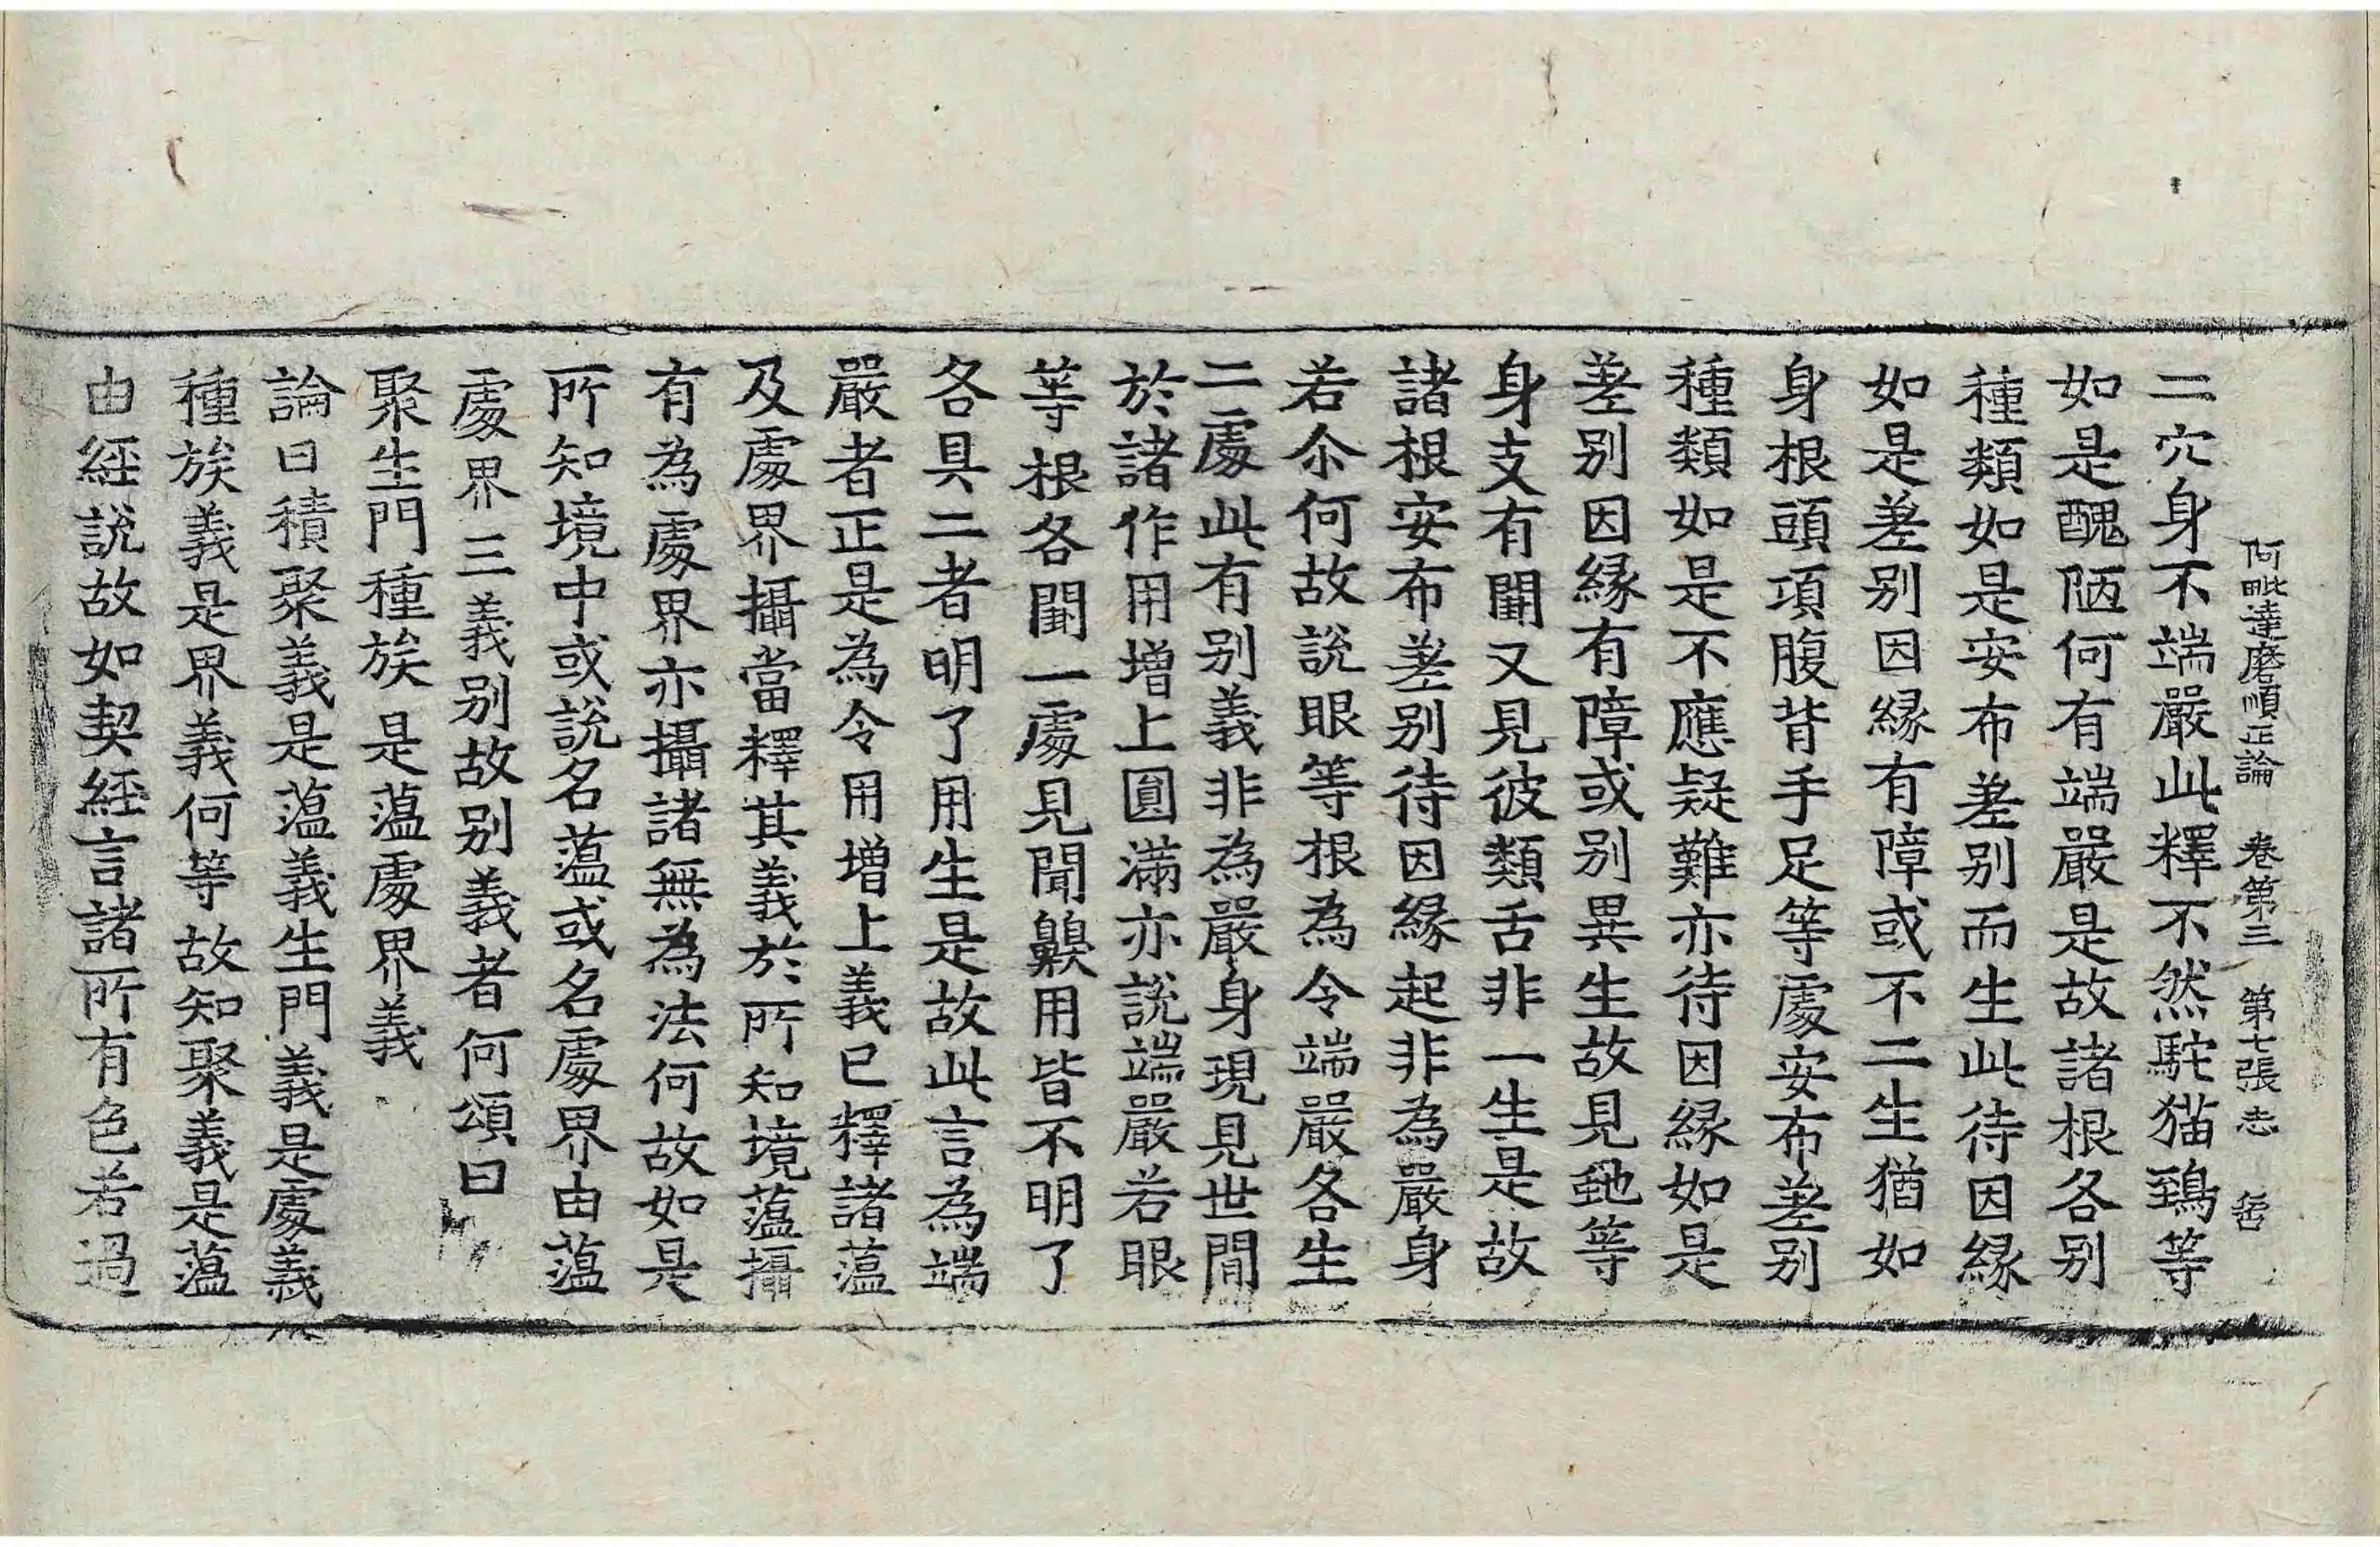 阿毗達磨順正論 卷第三 第七張 志
二穴身不端嚴此釋不然駝猫鵄等
如是醜陋何有端嚴是故諸根各别
種類如是安布差别而生此待因縁
如是差别因縁有障或不二生猶如
身根頭項腹背手足等處安布差别
種類如是不應疑難亦待因縁如是
差别因縁有障或別異生故見虵等
身支有闕又見彼類舌非一生是故
諸根安布差别待因縁起非為嚴身
若尒何故說眼等根為令端嚴各生
二處此有别義非為嚴身現見世間
於諸作用增上圓滿亦說端嚴若眼
等根各闕一處見聞齅用皆不明了
各具二者明了用生是故此言為端
嚴者正是為令用增上義已釋諸蕰
及處界攝當釋其義於所知境蕰攝
有為處界亦攝諸無為法何故如是
所知境中或說名蕰或名處界由蕰
處界三義别故别義者何頌曰
聚生門種族 是蕰處界義
論曰積聚義是蕰義生門義是處義
種族義是界義何等故知聚義是蕰
由經說故如契經言諸所有色若過